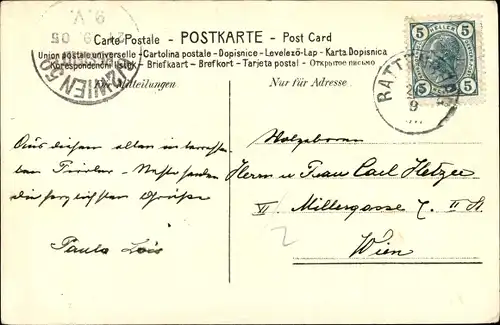 Carte Postale - POSTKARTE - Post Card
Union postale universelle - Cartolina postale - Dopisnice - Levelező-Lap - Karta Dopisnica
Korespondenční lístek - Briefkaart - Brefkort - Tarjeta postal - Открытое письмо
Für Mitteilungen
Nur für Adresse.
5 HELLER 5
5 5
WIEN 50
9.V
RATT
9
Aus diesem alten
die herzlichsten Grüße
Paula
Wohlgeboren
Herrn u Frau Carl Hetzer
VI Millergasse 7. II St.
Wien
2